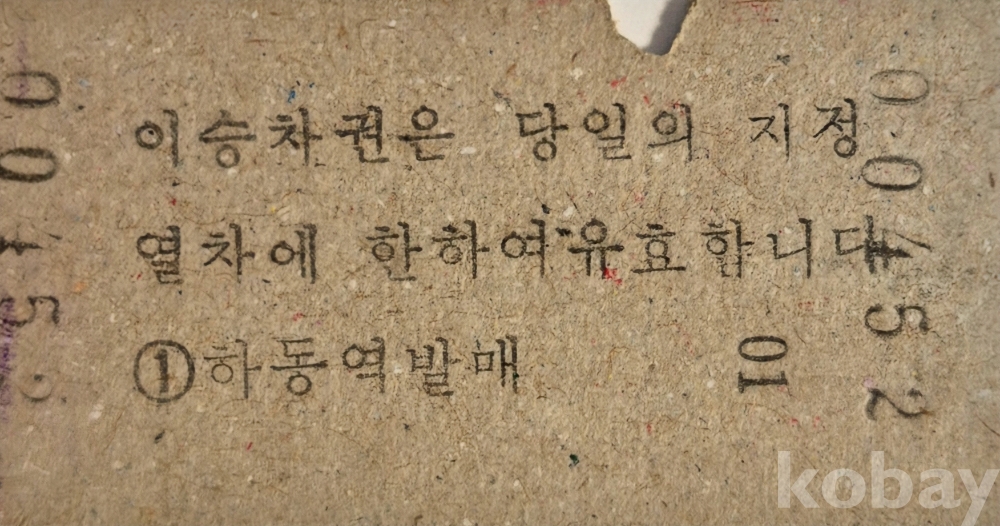 이승차권은 당일의 지정
열차에 한하여 유효합니다
①하동역발매
01
00452
00452
kobay